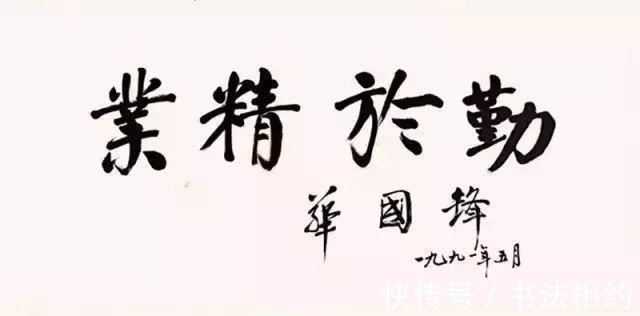 業精於勤
華國鋒
一九九一年五月
快传号／书法相约